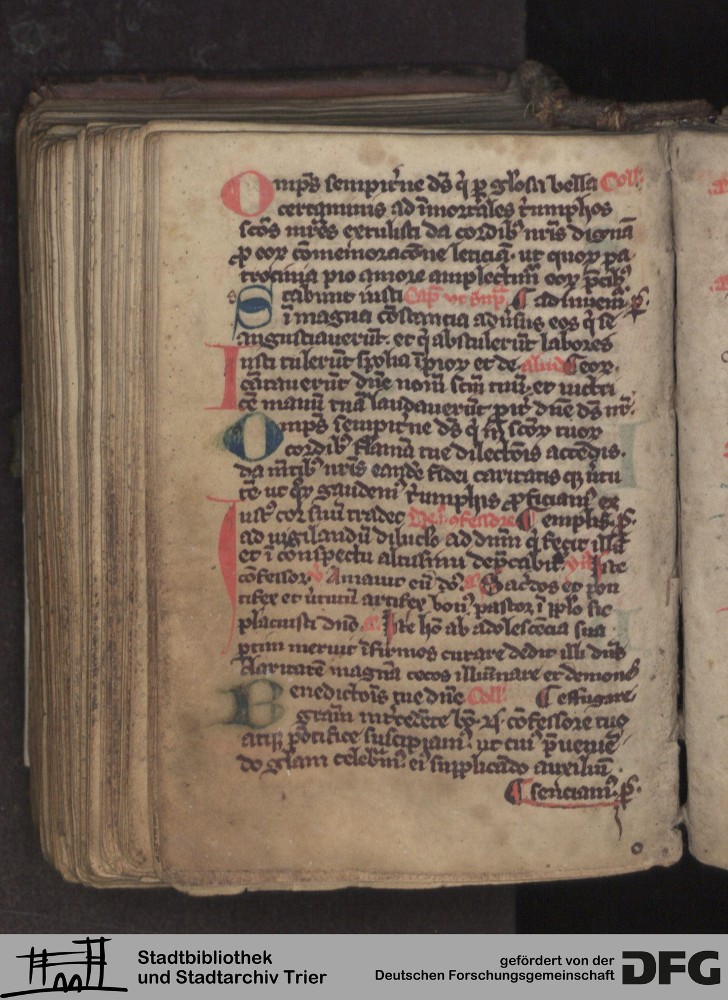 Omp̄s sempit'ne ds̄ q̇ ꝑ gl'osa bella Coll'
certaminis ad īmortales t'umphos
scōs mr̄es extulisti da cordib' nr̄is dignā
ꝓ eoꝝ cōmemoracōne leticiā. ut quoꝝ pa
trocinia pio amore amplectim' eoꝝ p̄cib'
Stabunt iusti Cap̄ ut sup̄ ¶ adiuuem'. ꝑ.
ī magna cōstancia adu'sus eos q̇ se
angustiauerūt. et q̇ abstulerūt labores
Iusti tulerūt spolia īpioꝝ et de aliud ¶ eoꝝ.
cātauerūt dn̄e nom̄ scm̄ tuū. et uictri
cē manū tuā laudauerūt pit' dn̄e ds̄ nr̄.
Omp̄s sempit'ne ds̄ q̇ scōꝝ tuoꝝ
cordib' flāmā tue dilectōis accēdis.
da mētib' nr̄is eandē fidei caritatis qꝫ u'tu
tē ut qoꝝ gaudem' t'umphis ꝓficiam' ex
Iust' cor suū tradet ¶ emplis. ꝑ.
ad uigilandū diluc'lo ad dn̄m q̇ fecit illū
et ī conspectu altissimi dep̄cabit'. Iste
cōfessor Amauit eū dō'. Sac'dos et pon
tifex et u'tutū artifex bon' pastor ī pp̄lo sic
placuisti dn̄o. Iste hō ab adolescēcia sua
p̄tim meruit īfirmos curare dedit illi dn̄s
claritatē magnā cecos illūinare et demones
Benedictōis tue dn̄e Coll' ¶ effugare.
gr̄am int'cedēte b̄o N cōfessore tuo
atqꝫ pōtifice suscipiam'. ut cui' p̄ueniē
do gl'am celebm'. ei' supplicādo auxiliū
¶ senciam'. ꝑ.
Stadtbibliothek
und Stadtarchiv Trier
gefördert von der
Deutschen Forschungsgemeinschaft
DFG